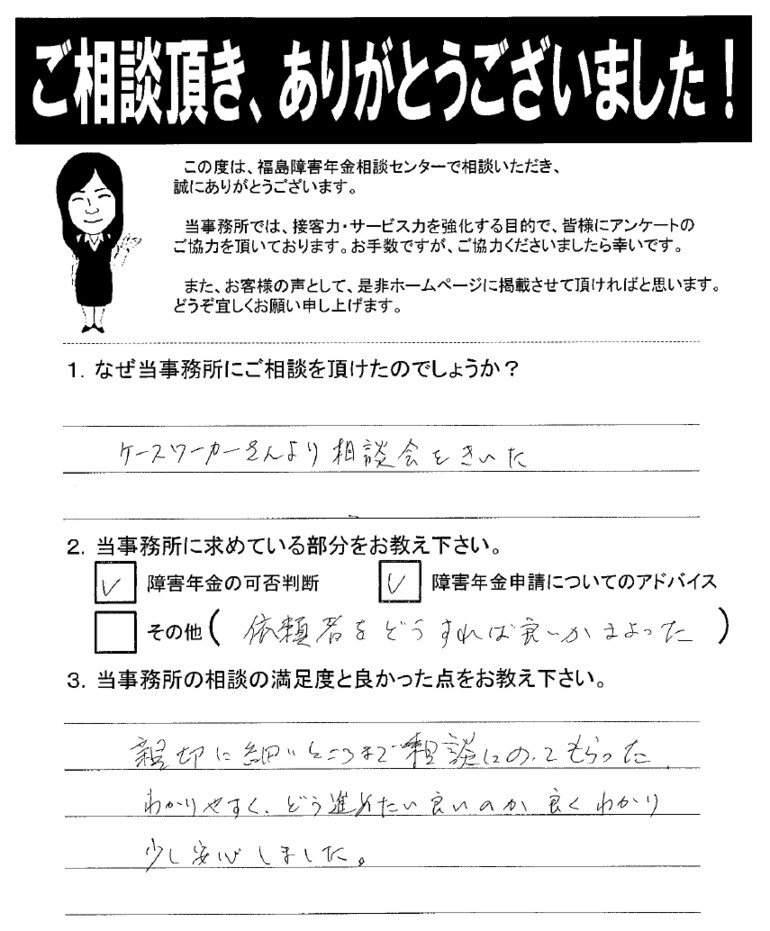 ご相談頂き、ありがとうございました！
この度は、福島障害年金相談センターで相談いただき、
誠にありがとうございます。
当事務所では、接客力・サービス力を強化する目的で、皆様にアンケートの
ご協力を頂いております。お手数ですが、ご協力くださいましたら幸いです。
また、お客様の声として、是非ホームページに掲載させて頂ければと思います。
どうぞ宜しくお願い申し上げます。
1. なぜ当事務所にご相談を頂けたのでしょうか？
ケースワーカーさんより相談会をきいた
2. 当事務所に求めている部分をお教え下さい。
障害年金の可否判断 障害年金申請についてのアドバイス
その他( 依頼者をどうすれば良いかまよった )
3. 当事務所の相談の満足度と良かった点をお教え下さい。
親切に細いところまで相談にのってもらった
わかりやすく、どう進めたい良いのか良くわかり
少し安心しました。